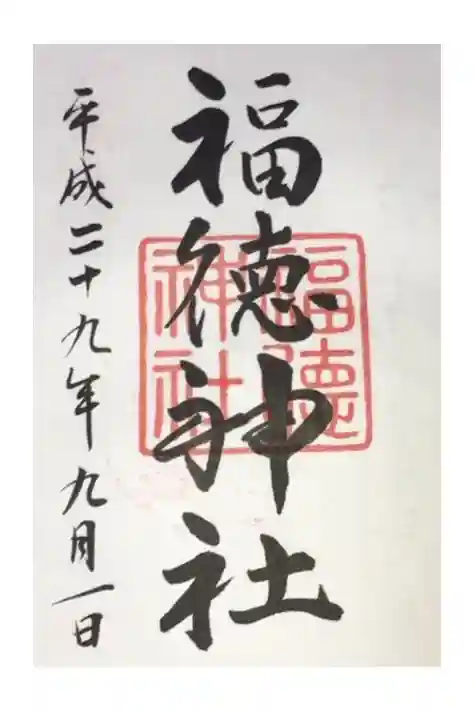 福徳神社
福徳神社
平成二十九年九月一日